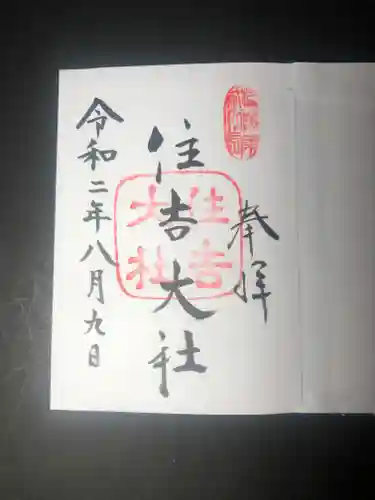 奉拝
住吉大社
住吉
大社
令和二年八月九日